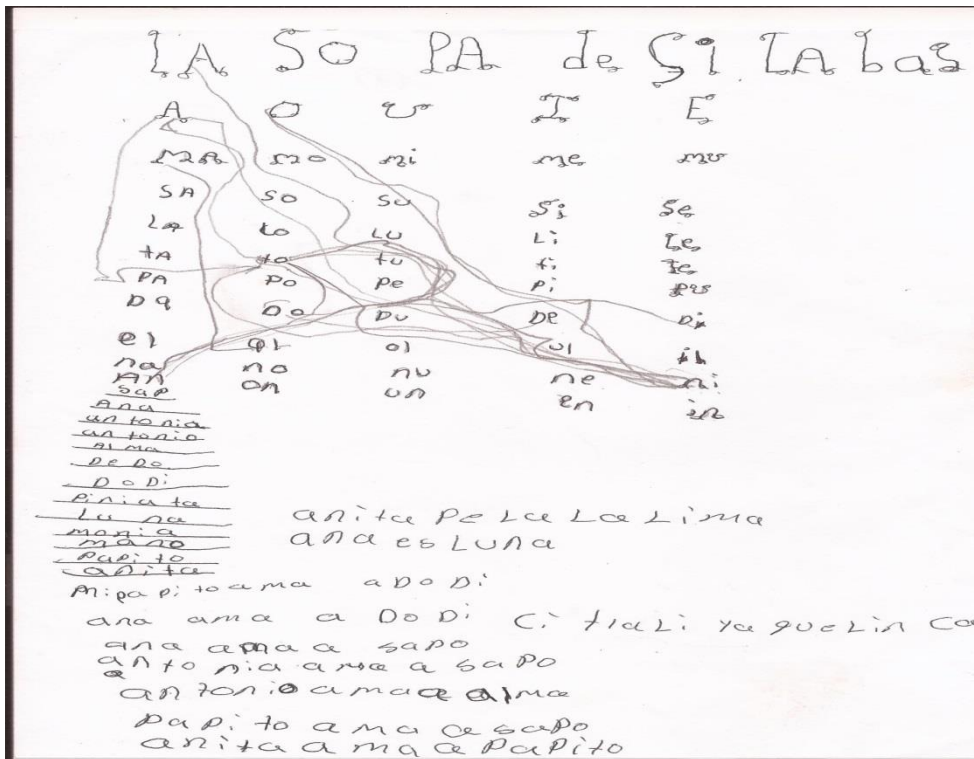 LA SO PA de Si LA bas
A O U I E
MA mo mi me mu
SA so su Si Se
La lo LU Li Le
tA to tu ti te
PA Po Pe Pi pu
Da Do Du De Di
el al ol ul il
na no nu ne ni
AN on un en in
sap
Ana
antonia
antonio
Alma
DeDo
DoDi
Piniata
Luna
monia
mano
PaPito
anita
anita PeLa La Lima
ana es Luna
Mi papito ama a DoDi
ana ama a DoDi Ci tlaLi ya queLin Ca
ana ama a saPo
antonia ama a saPo
antonio ama a alma
PaPito ama a saPo
anita ama a PaPito